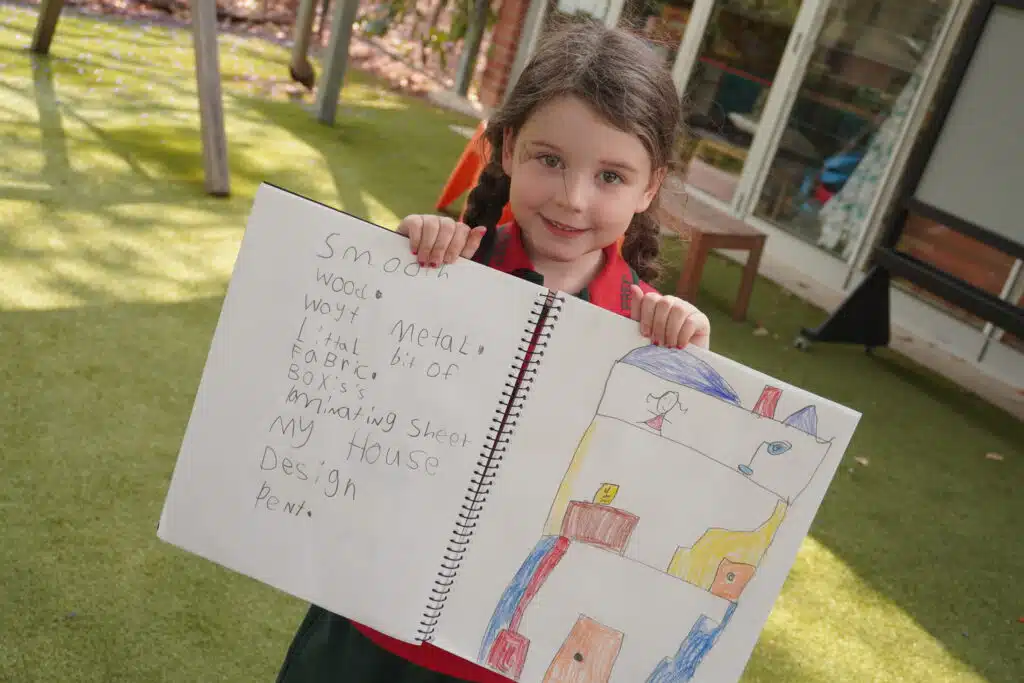 Smooth
wood.
wayt Metal.
Littal bit of
FaBric.
BOXis's
laminating Sheet
My House
Design
Pent.